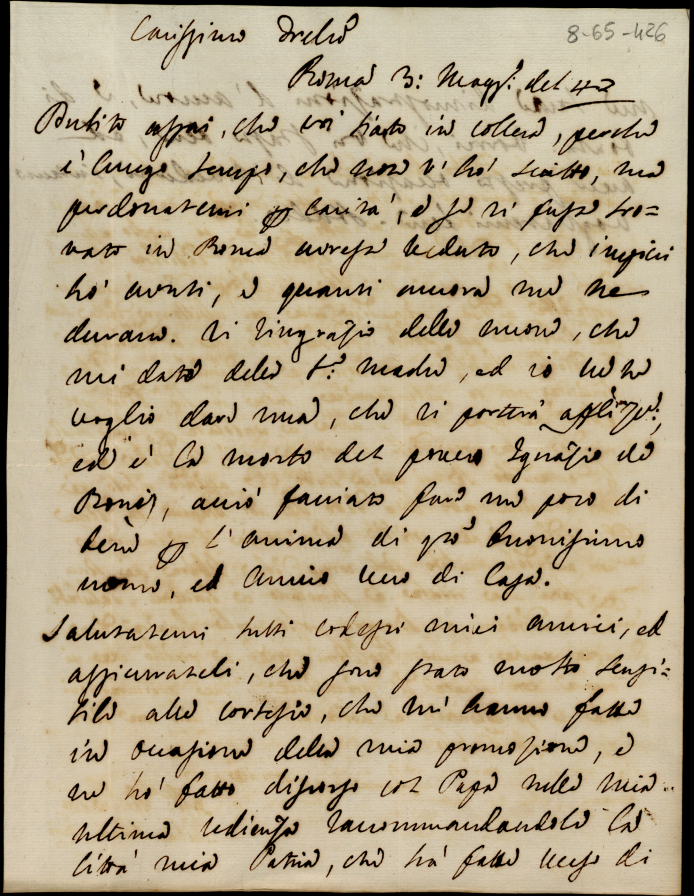 8-65-426
Carissimo
Roma 3: Magg.o del 42
Dubito assai, che voi siate in collera, perché
è lungo tempo, che non v'hò scritto, ma
perdonatemi per carità, e se vi fusse tro=
vato in Roma avresse veduto, che impicci
hò avuti, e quanti ancora me ne
durano. Vi ringrazio delle nuove, che
mi date della S.a Madre, ed io ve ne
voglio dare una, che vi porterà afflizz.e,
ed è la morte del povero Ignazio de
Rossi, acciò facciate fare un poco di
bene per l'anima di q.to buonissimo
uomo, ed amico vero di Casa.
Salutatemi tutti codesti miei amici, ed
assicurateli, che sono stato molto sensi=
bile alle cortesie, che mi hanno fatte
in occasione della mia promozione, e
ne hò fatto discorso col Papa nella mia
ultima udienza raccommandandole la
Città mia Patria, che hà fatte verso di